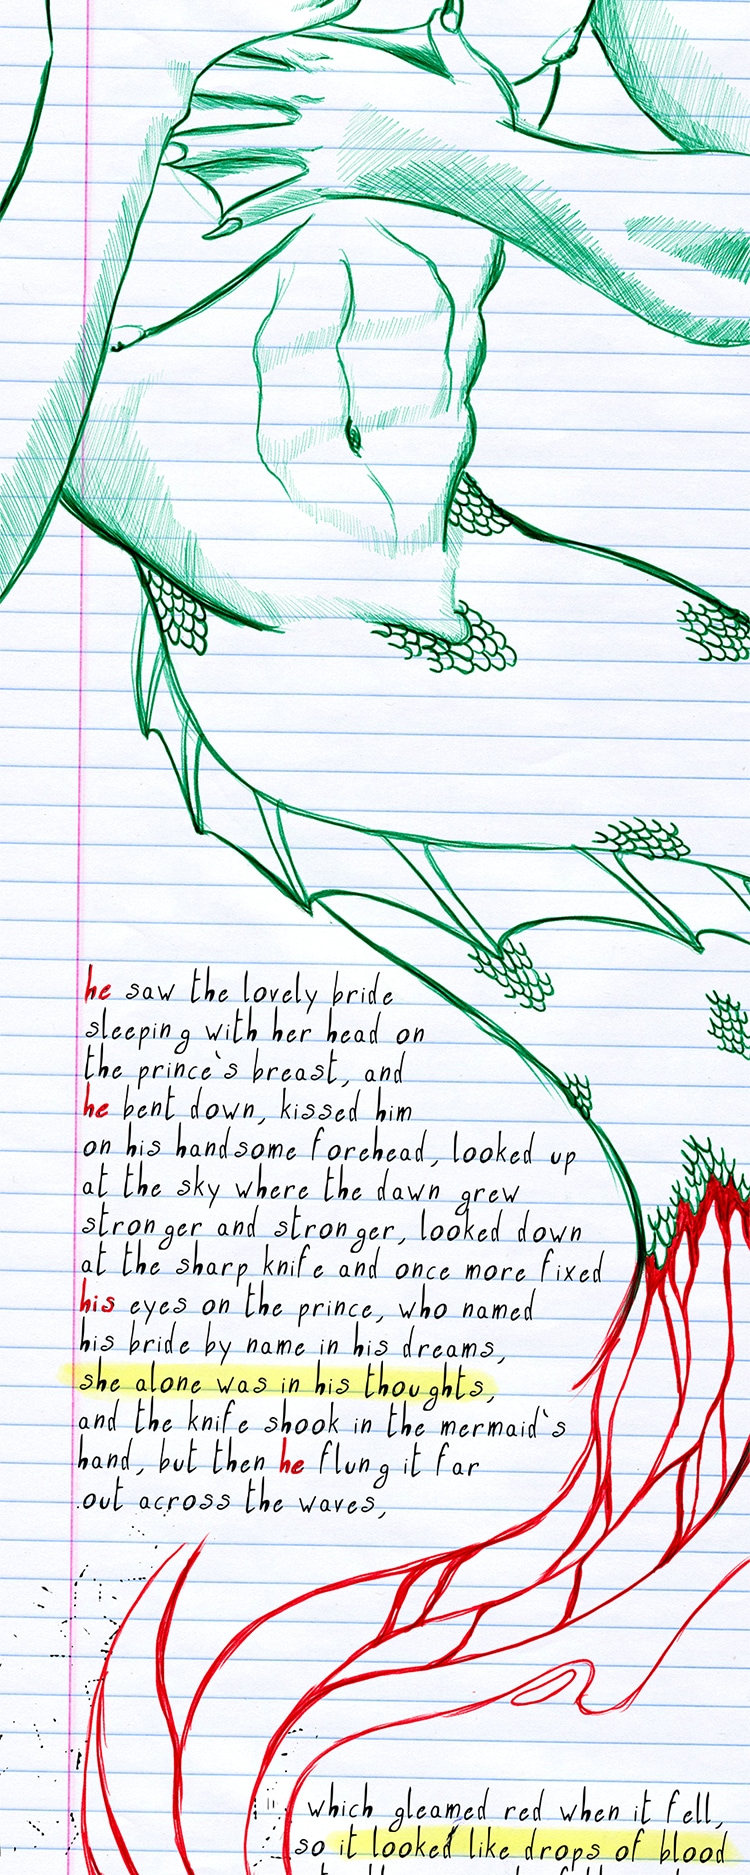 he saw the lovely bride
sleeping with her head on
the prince`s breast, and
he bent down, kissed him
on his handsome forehead, looked up
at the sky where the dawn grew
stronger and stronger, looked down
at the sharp knife and once more fixed
his eyes on the prince, who named
his bride by name in his dreams,
she alone was in his thoughts,
and the knife shook in the mermaid`s
hand, but then he flung it far
out across the waves,
which gleamed red when it fell,
so it looked like drops of blood